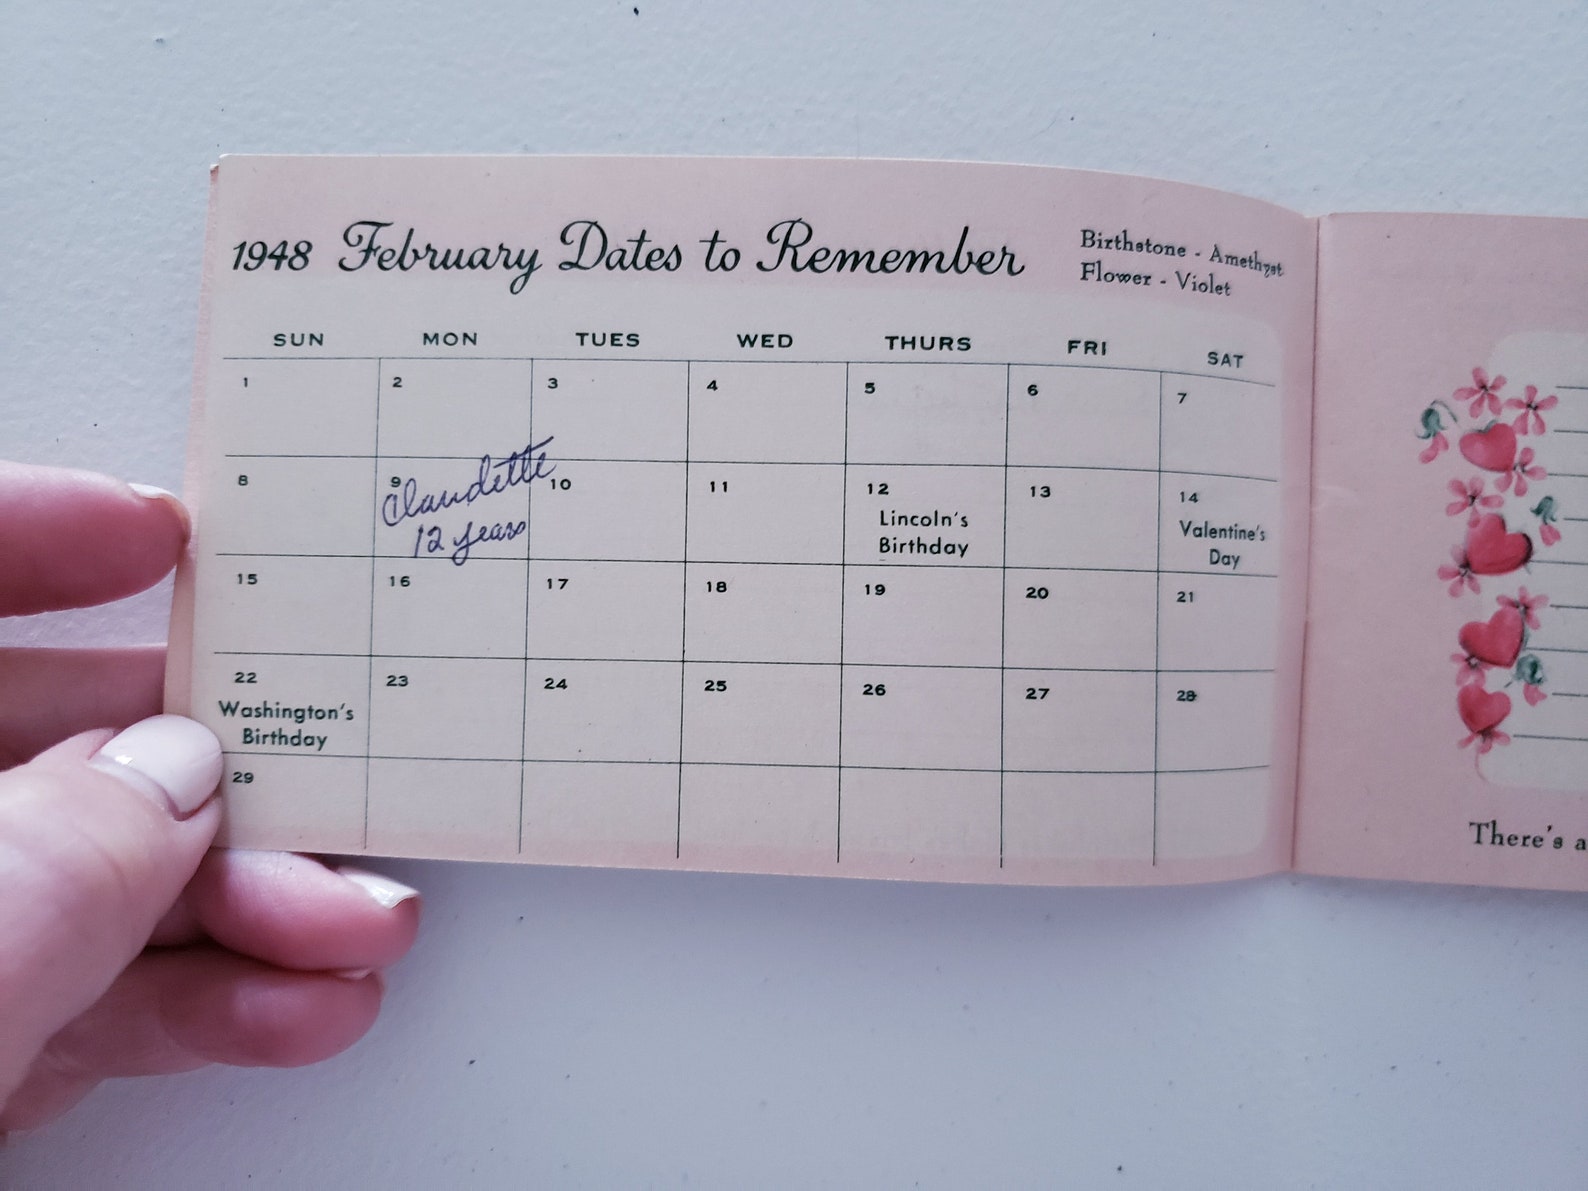 1948 February Dates to Remember
Birthstone - Amethyst
Flower - Violet
SUN MON TUES WED THURS FRI SAT
1 2 3 4 5 6 7
8 9 10 11 12 13 14
Claudette
12 years
Lincoln's
Birthday
Valentine's
Day
15 16 17 18 19 20 21
22 23 24 25 26 27 28
Washington's
Birthday
29
There's a